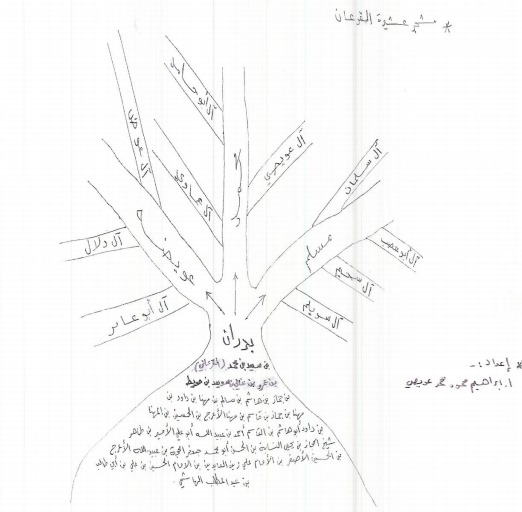 * مشجر عشيرة القرعان
آل أبو حامد
آل عوض
حمد
آل عويضي
آل سلمان
آل حماوي
آل دلال
عويضه
مسلم
آل سحيم
آل سويلم
آل أبو عامر
بدران
بن سعيد بن محمد (القرعان)
بن جماز بن هاشم بن سالم بن مهنا بن داود بن
مهنا بن جماز بن قاسم بن مهنا الأعرج بن الحسين بن المهنا
بن داود أبو هاشم بن القاسم أحمد بن عبيد الله أبو علي الأمير بن طاهر
شيخ الحجاز بن يحيى النسابة بن الحسن أبو محمد جعفر الحجة بن عبيد الله الأعرج
بن الحسين الأصغر بن الأمام علي زين العابدين بن الامام الحسين بن علي بن أبي طالب
بن عبد المطلب الهاشمي
* إعداد :-
أ. ابراهيم حمود محمد عويضي